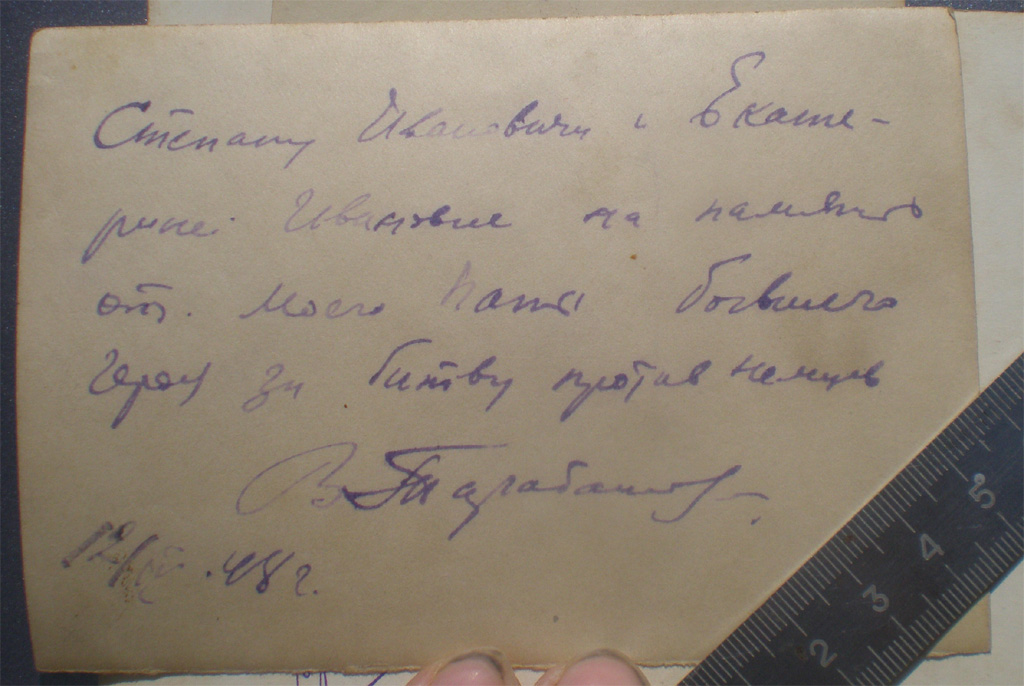 Степану Ивановичу и Екате-
рине Ивановне на память
от. моего бывшего
Героя за битву против немцев
В. Тарабанов
12/ .48 г.
5
4
3
2